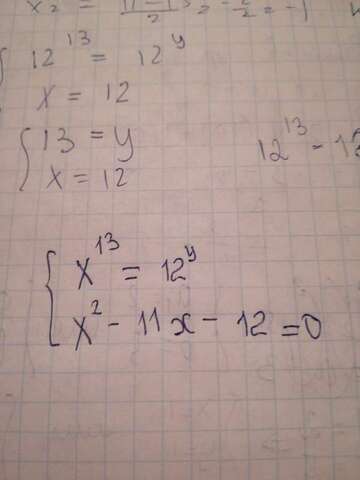 x₂ = (11-13)/2 = -2/2 = -1
{ 12¹³ = 12ʸ
x = 12
{ 13 = y
x = 12
12¹³ -
{ x¹³ = 12ʸ
x² - 11x - 12 = 0